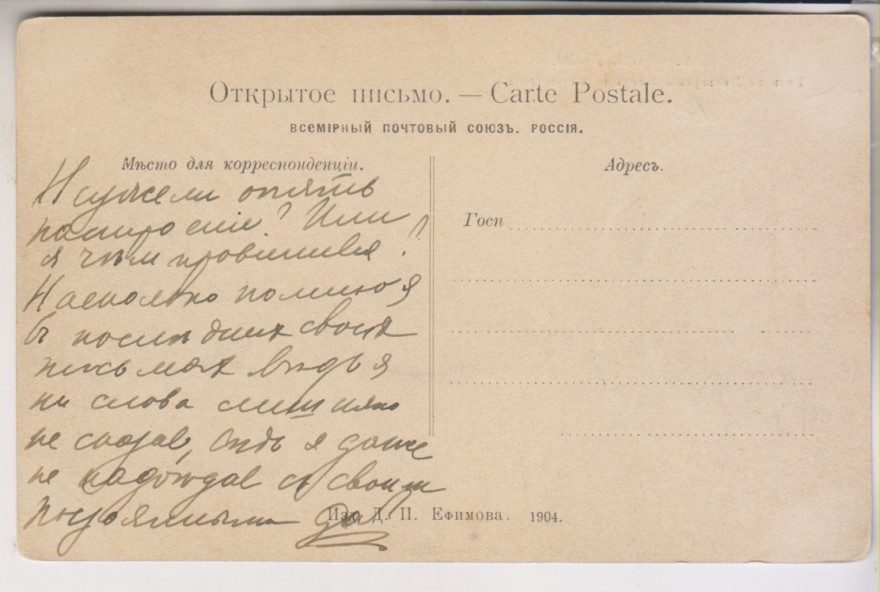 Открытое письмо. — Carte Postale.
ВСЕМІРНЫЙ ПОЧТОВЫЙ СОЮЗЪ. РОССІЯ.
Мѣсто для корреспонденціи.
Адресъ.
Госп
Неужели опять
? Или
я чѣмъ провинился?
Насколько помню я
въ послѣднихъ своихъ
письмахъ вѣдь я
ни слова лишняго
не сказавъ, вѣдь я даже
не съ своимъ
Изд. Д. П. Ефимова. 1904.